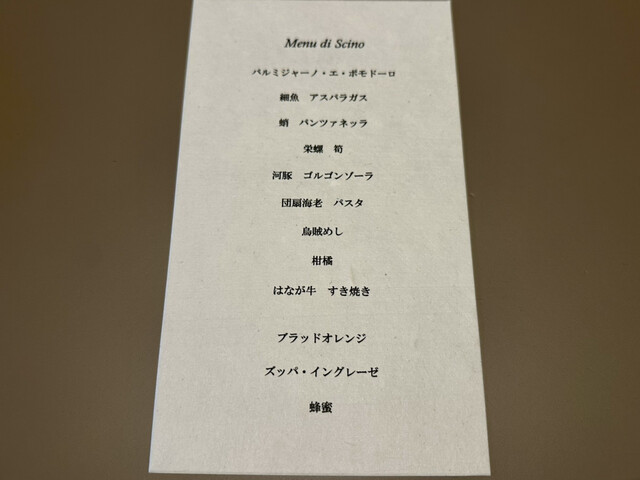 Menu di Scino
パルミジャーノ・エ・ポモドーロ
細魚　アスパラガス
蛸　パンツァネッラ
栄螺　筍
河豚　ゴルゴンゾーラ
団扇海老　パスタ
烏賊めし
柑橘
はなが牛　すき焼き
ブラッドオレンジ
ズッパ・イングレーゼ
蜂蜜